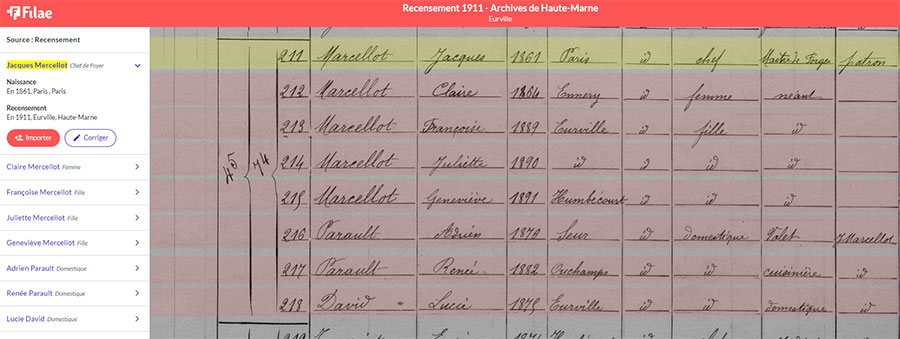 Filae
Recensement 1911 - Archives de Haute-Marne
Eurville
Source : Recensement
Jacques Mercellot Chef de Foyer
Naissance
En 1861, Paris, Paris
Recensement
En 1911, Eurville, Haute-Marne
Importer
Corriger
Claire Mercellot Femme
Françoise Mercellot Fille
Juliette Mercellot Fille
Geneviève Mercellot Fille
Adrien Parault Domestique
Renée Parault Domestique
Lucie David Domestique
45 44
211 Marcellot Jacques 1861 Paris id chef Maître de Forges patron
212 Marcellot Claire 1864 Ennery id femme néant
213 Marcellot Françoise 1889 Eurville id fille id
214 Marcellot Juliette 1890 id id id id
215 Marcellot Geneviève 1891 Humbécourt id id id
216 Parault Adrien 1870 Seur id domestique Valet J Marcellot
217 Parault Renée 1882 Ouchamps id id cuisinière id
218 David Lucie 1875 Eurville id id domestique id
219